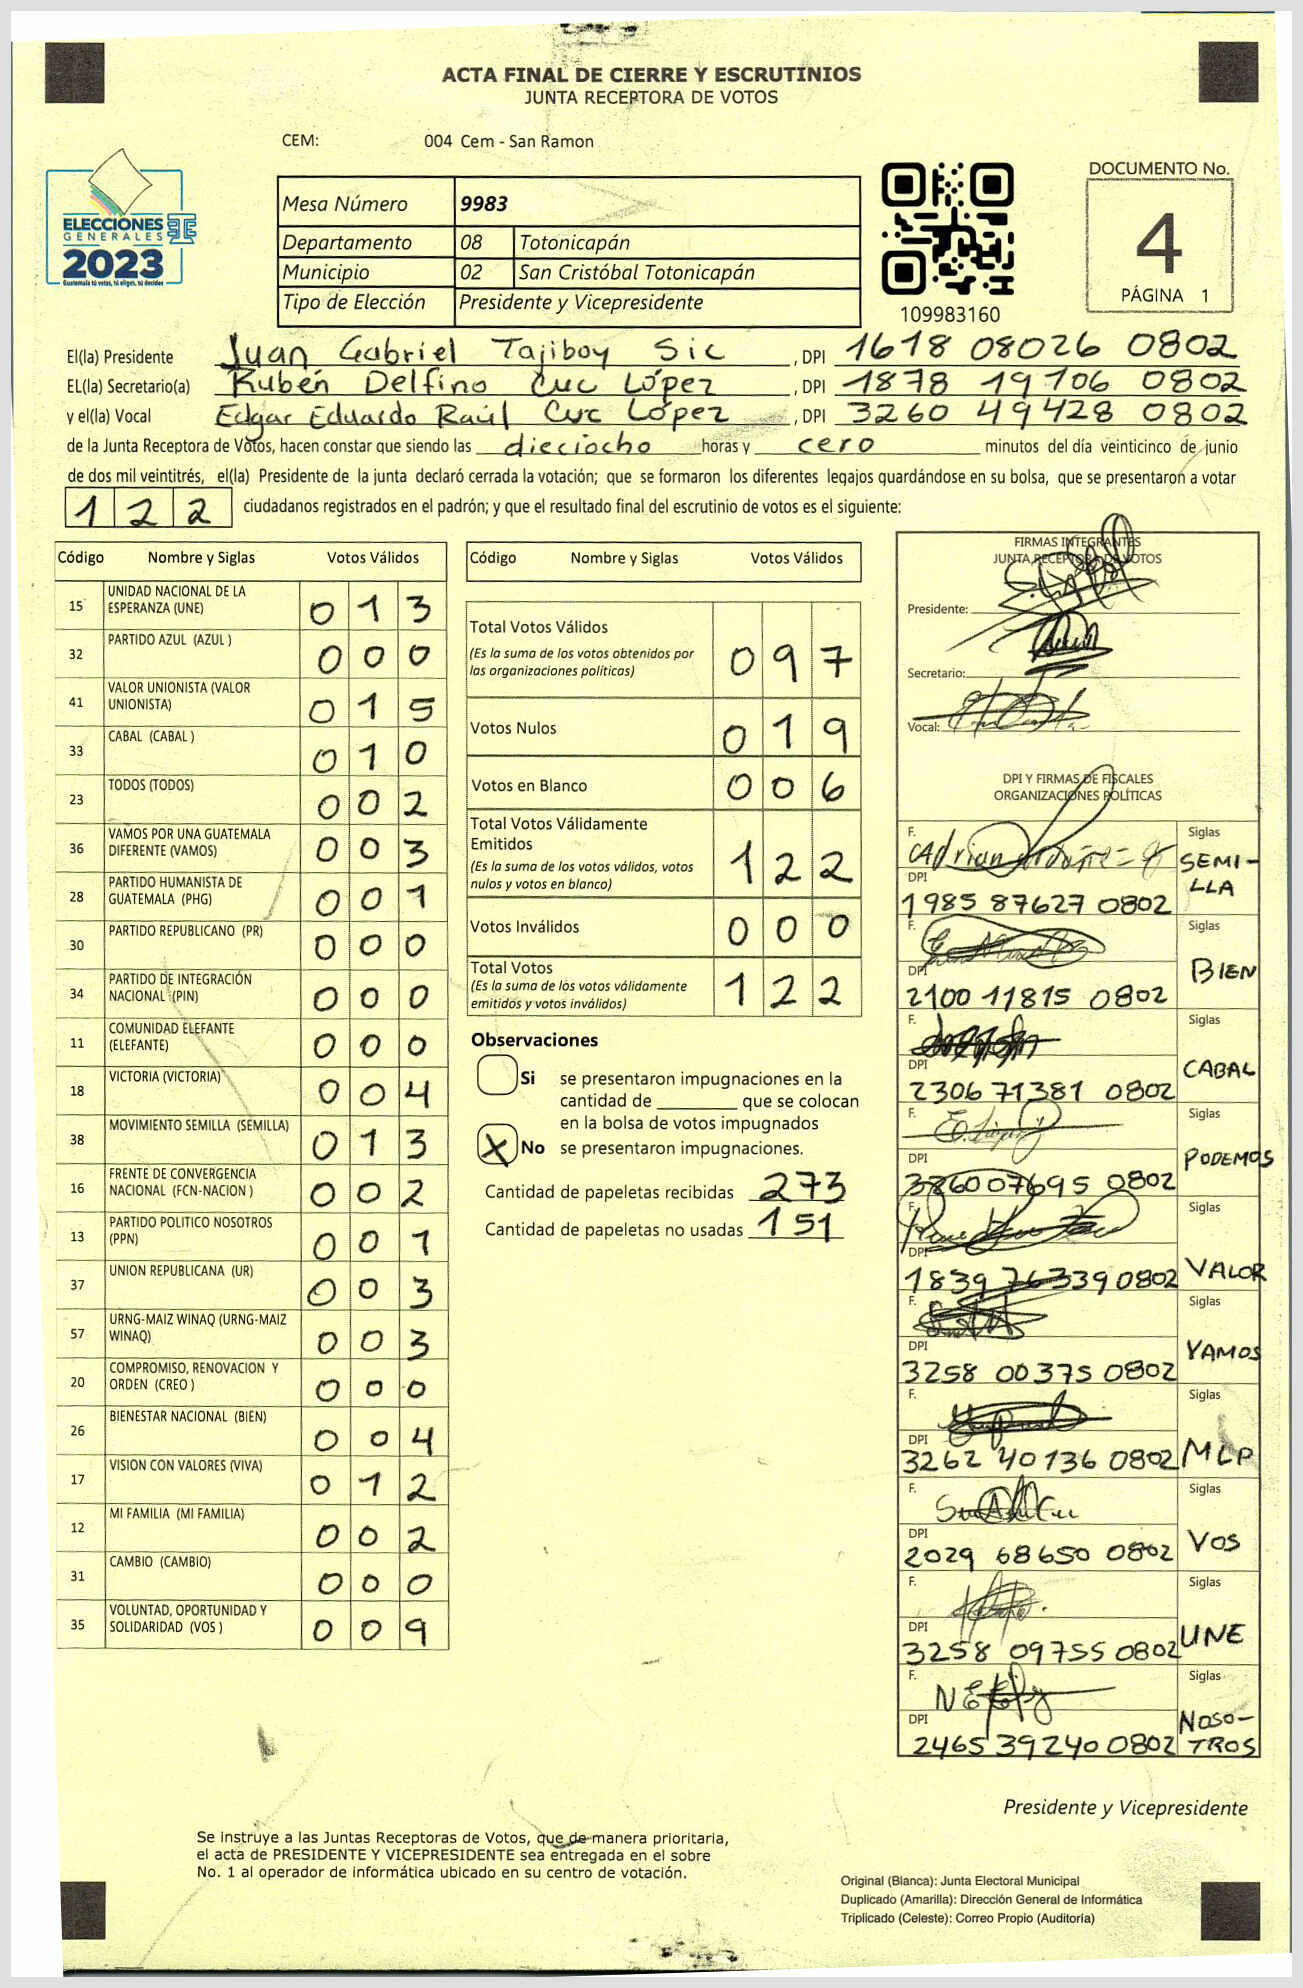 ACTA FINAL DE CIERRE Y ESCRUTINIOS
JUNTA RECEPTORA DE VOTOS
CEM: 004 Cem - San Ramon
ELECCIONES
GENERALES
2023
Guatemala tú votas, tú eliges, tú decides
Mesa Número 9983
Departamento 08 Totonicapán
Municipio 02 San Cristóbal Totonicapán
Tipo de Elección Presidente y Vicepresidente
109983160
DOCUMENTO No.
4
PÁGINA 1
El(la) Presidente Juan Gabriel Tajiboy Sic , DPI 1618 08026 0802
EL(la) Secretario(a) Rubén Delfino Cuc López , DPI 1878 19706 0802
y el(la) Vocal Edgar Eduardo Raúl Cuc López , DPI 3260 49428 0802
de la Junta Receptora de Votos, hacen constar que siendo las dieciocho horas y cero minutos del día veinticinco de junio
de dos mil veintitrés, el(la) Presidente de la junta declaró cerrada la votación; que se formaron los diferentes legajos guardándose en su bolsa, que se presentaron a votar
122 ciudadanos registrados en el padrón; y que el resultado final del escrutinio de votos es el siguiente:
Código Nombre y Siglas Votos Válidos
15 UNIDAD NACIONAL DE LA
ESPERANZA (UNE) 013
32 PARTIDO AZUL (AZUL ) 000
41 VALOR UNIONISTA (VALOR
UNIONISTA) 015
33 CABAL (CABAL ) 010
23 TODOS (TODOS) 002
36 VAMOS POR UNA GUATEMALA
DIFERENTE (VAMOS) 003
28 PARTIDO HUMANISTA DE
GUATEMALA (PHG) 001
30 PARTIDO REPUBLICANO (PR) 000
34 PARTIDO DE INTEGRACIÓN
NACIONAL (PIN) 000
11 COMUNIDAD ELEFANTE
(ELEFANTE) 000
18 VICTORIA (VICTORIA) 004
38 MOVIMIENTO SEMILLA (SEMILLA) 013
16 FRENTE DE CONVERGENCIA
NACIONAL (FCN-NACION ) 002
13 PARTIDO POLITICO NOSOTROS
(PPN) 001
37 UNION REPUBLICANA (UR) 003
57 URNG-MAIZ WINAQ (URNG-MAIZ
WINAQ) 003
20 COMPROMISO, RENOVACION Y
ORDEN (CREO ) 000
26 BIENESTAR NACIONAL (BIEN) 004
17 VISION CON VALORES (VIVA) 012
12 MI FAMILIA (MI FAMILIA) 002
31 CAMBIO (CAMBIO) 000
35 VOLUNTAD, OPORTUNIDAD Y
SOLIDARIDAD (VOS ) 009
Código Nombre y Siglas Votos Válidos
Total Votos Válidos
(Es la suma de los votos obtenidos por
las organizaciones políticas) 097
Votos Nulos 019
Votos en Blanco 006
Total Votos Válidamente
Emitidos
(Es la suma de los votos válidos, votos
nulos y votos en blanco) 122
Votos Inválidos 000
Total Votos
(Es la suma de los votos válidamente
emitidos y votos inválidos) 122
Observaciones
Si se presentaron impugnaciones en la
cantidad de ________ que se colocan
en la bolsa de votos impugnados
X No se presentaron impugnaciones.
Cantidad de papeletas recibidas 273
Cantidad de papeletas no usadas 151
FIRMAS INTEGRANTES
JUNTA RECEPTORA DE VOTOS
Presidente:
Secretario:
Vocal:
DPI Y FIRMAS DE FISCALES
ORGANIZACIONES POLÍTICAS
F. Adrian Siglas
DPI SEMI-
LLA
1985 87627 0802
F. Siglas
DPI BIEN
2100 11815 0802
F. Siglas
DPI CABAL
2306 71381 0802
F. Siglas
DPI PODEMOS
0802
F. Siglas
DPI VALOR
1839 76339 0802
F. Siglas
DPI VAMOS
3258 00375 0802
F. Siglas
DPI
3262 40136 0802 MLP
F. Siglas
DPI VOS
2029 68650 0802
F. Siglas
DPI UNE
3258 09755 0802
F. Siglas
DPI NOSO-
2465 39240 0802 TROS
Presidente y Vicepresidente
Se instruye a las Juntas Receptoras de Votos, que de manera prioritaria,
el acta de PRESIDENTE Y VICEPRESIDENTE sea entregada en el sobre
No. 1 al operador de informática ubicado en su centro de votación.
Original (Blanca): Junta Electoral Municipal
Duplicado (Amarilla): Dirección General de Informática
Triplicado (Celeste): Correo Propio (Auditoría)